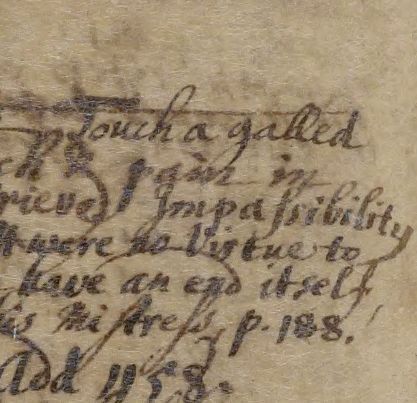 Touch a galled
ch & pain in
rieve) Impassibility
t were no Virtue to
have an end itself
his Mistress, p. 188.
Add 458.